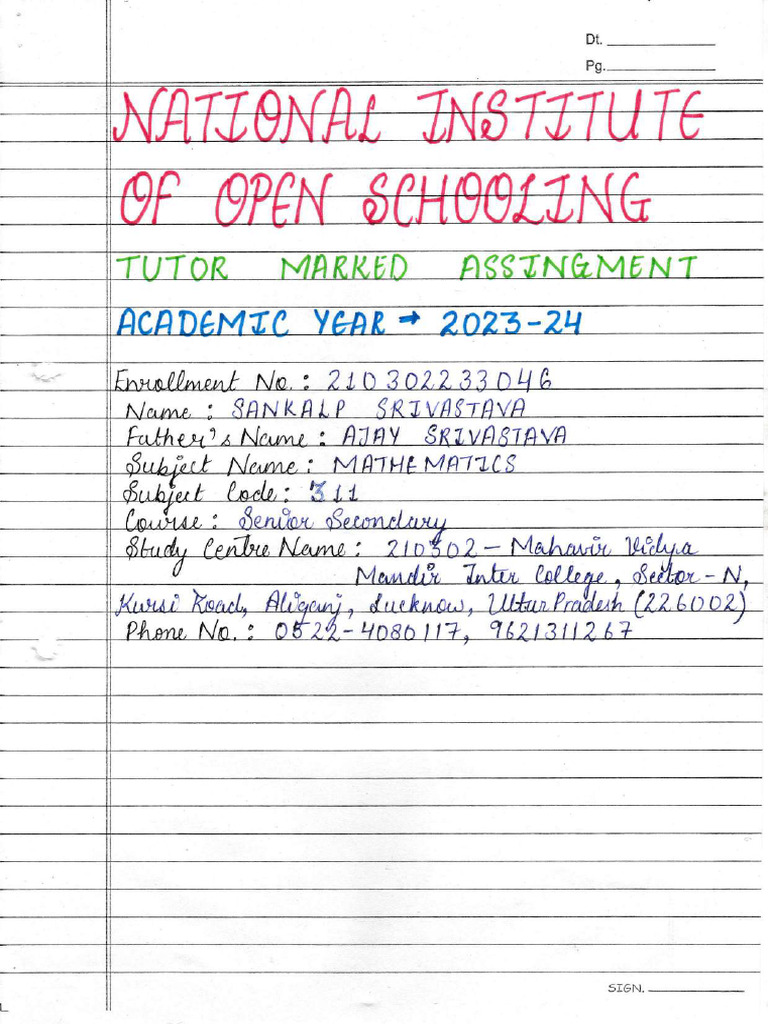 Dt. 
Pg.
NATIONAL INSTITUTE
OF OPEN SCHOOLING
TUTOR MARKED ASSINGMENT
ACADEMIC YEAR → 2023-24
Enrollment No. : 210302233046
Name : SANKALP SRIVASTAVA
Father's Name : AJAY SRIVASTAVA
Subject Name : MATHEMATICS
Subject Code : 311
Course : Senior Secondary
Study Centre Name : 210302 - Mahavir Vidya
Mandir Inter College, Sector - N,
Kursi Road, Aliganj, Lucknow, Uttar Pradesh (226002)
Phone No. : 0522-4080117, 9621311267
SIGN.